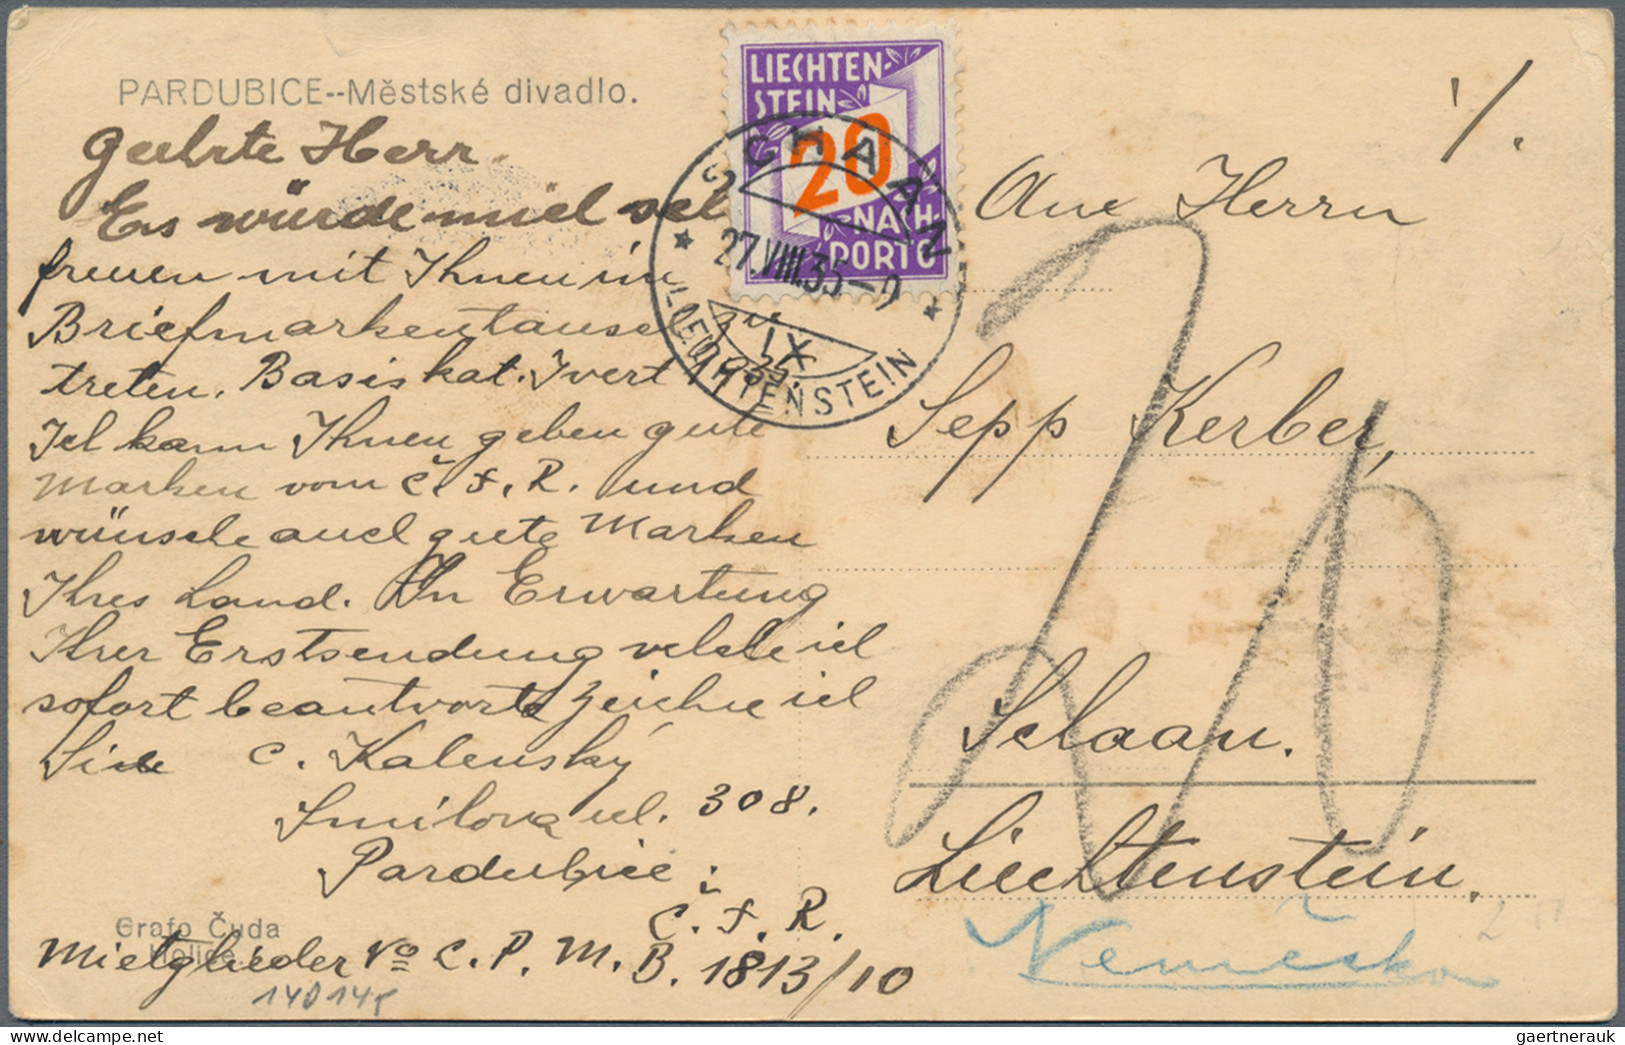 PARDUBICE--Městské divadlo.
Geehrte Herr.
Es würde miel sel
freuen mit Ihnen in
Briefmarkentausel zu
treten. Basis kat. Ivert 1935.
Iel kann Ihnen geben gute
Marken vom Č.S.R. und
wünsele auel gute Marken
Ihres Land. In Erwartung
Ihrer Erstsendung velele iel
sofort beantvorte zeichne iel
C. Kalenský
Smilova ul. 308.
Pardubice.
Č.S.R.
Mietglieder No C.P.M.B. 1813/10
Grafo Čuda
Holice
14D14F
LIECHTEN-
STEIN
20
NACH-
PORTO
SCHAAN
27.VIII.35-9
IX
LIECHTENSTEIN
1/.
Ane Herrn
Sepp Kerber,
Selaan.
Liechtenstein.
20
Německo
gaertnerauk